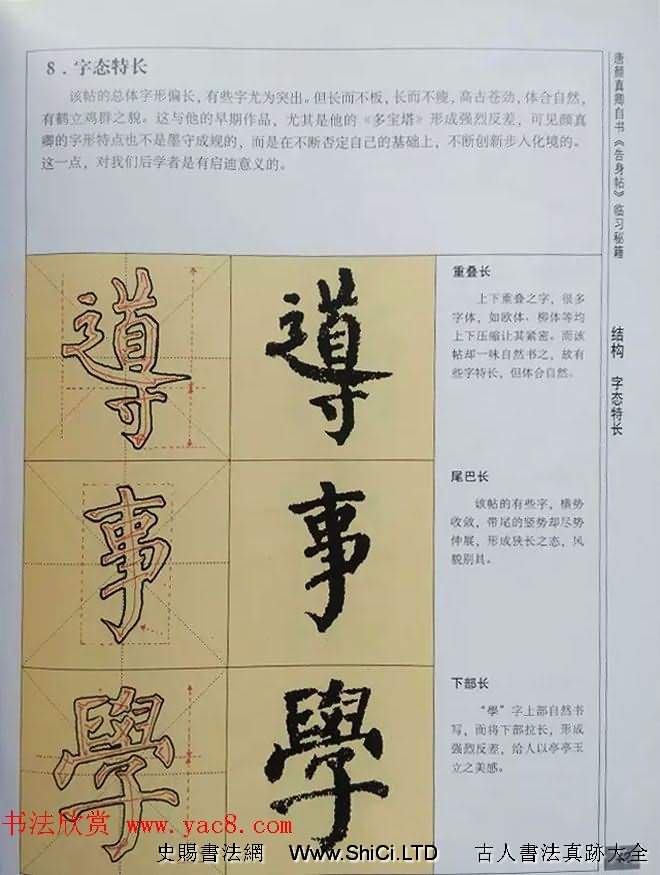 8．字态特长
该帖的总体字形偏长，有些字尤为突出。但长而不板，长而不瘦，高古苍劲，体合自然，
有鹤立鸡群之貌。这与他的早期作品，尤其是他的《多宝塔》形成强烈反差，可见颜真
卿的字形特点也不是墨守成规的，而是在不断否定自己的基础上，不断创新步入化境的。
这一点，对我们后学者是有启迪意义的。
唐颜真卿自书《告身帖》临习秘籍
结构 字态特长
導
導
重叠长
上下重叠之字，很多
字体，如欧体、柳体等均
上下压缩让其紧密。而该
帖却一味自然书之，故有
些字特长，但体合自然。
事
事
尾巴长
该帖的有些字，横势
收敛，带尾的竖势却尽势
伸展，形成狭长之态，风
貌别具。
學
學
下部长
“學”字上部自然书
写，而将下部拉长，形成
强烈反差，给人以亭亭玉
立之美感。
书法欣赏 www.yac8.com
史賜書法網 Www.ShiCi.LTD 古人書法真跡大全